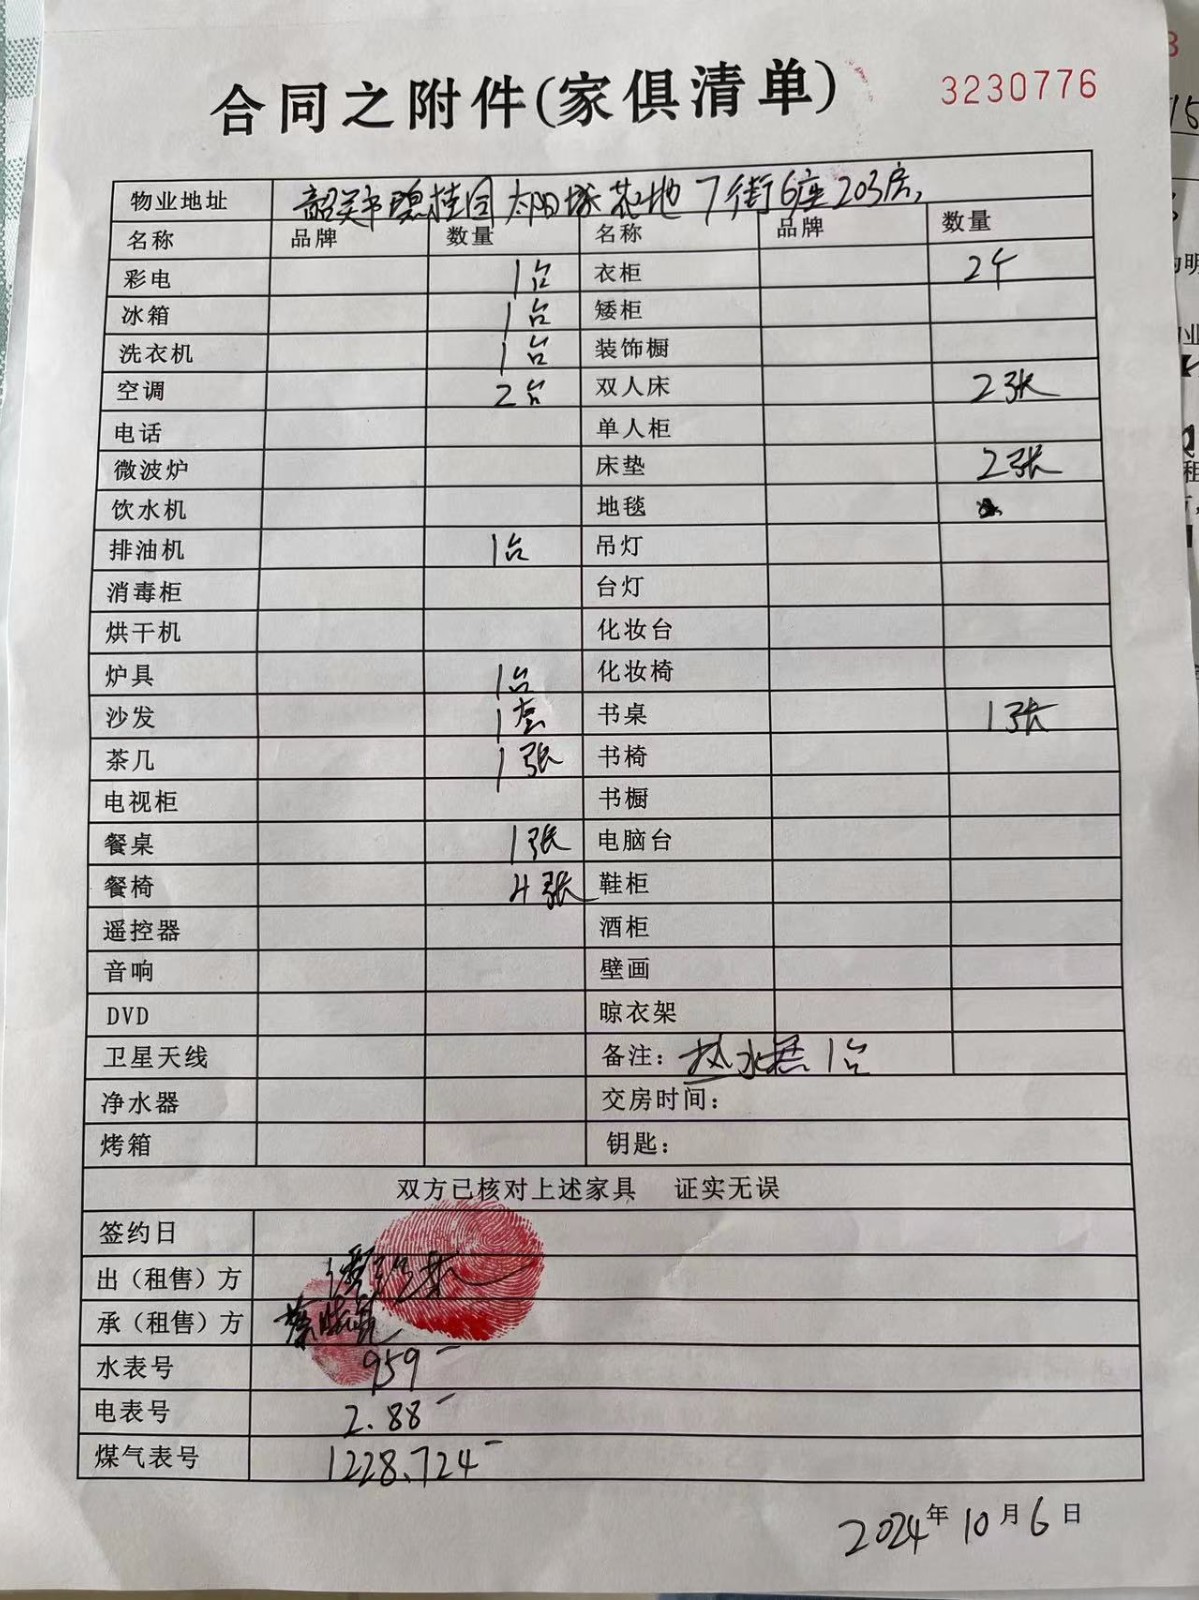 合同之附件(家俱清单) 3230776
物业地址 韶关市碧桂园太阳城花地7街6座203房
名称 品牌 数量 名称 品牌 数量
彩电 1台 衣柜 2个
冰箱 1台 矮柜
洗衣机 1台 装饰橱
空调 2台 双人床 2张
电话 单人柜
微波炉 床垫 2张
饮水机 地毯
排油机 1台 吊灯
消毒柜 台灯
烘干机 化妆台
炉具 1台 化妆椅
沙发 1套 书桌 1张
茶几 1张 书椅
电视柜 书橱
餐桌 1张 电脑台
餐椅 4张 鞋柜
遥控器 酒柜
音响 壁画
DVD 晾衣架
卫星天线 备注: 热水器1台
净水器 交房时间:
烤箱 钥匙:
双方已核对上述家具 证实无误
签约日
出(租售)方
承(租售)方
水表号 959-
电表号 2.88-
煤气表号 1228.724-
2024年10月6日